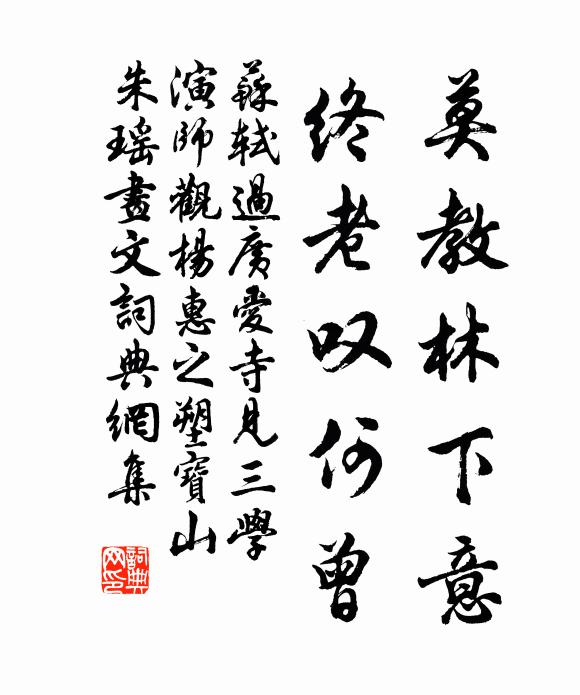 莫教林下意
終老叹何曾
蘇軾過廣愛寺見三學
演師觀楊惠之塑寶山
朱瑶畫文詞典網集
詞典
网印